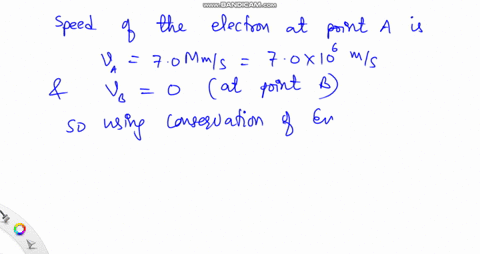 WWW.BANDICAM.COM
Speed of the electron at point A is
V_A = 7.0 Mm/s = 7.0 × 10⁶ m/s
& V_B = 0 (at point B)
so using conservation of En